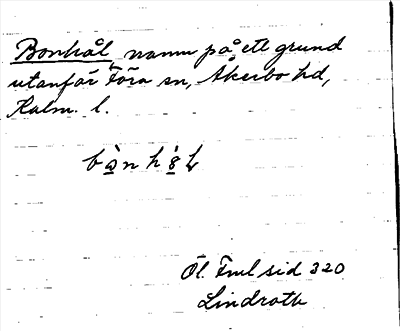 Bonhål namn på ett grund
utanför Föra sn, Åkerbo hd,
Kalm. l.
Öl. Fml sid 320
Lindroth